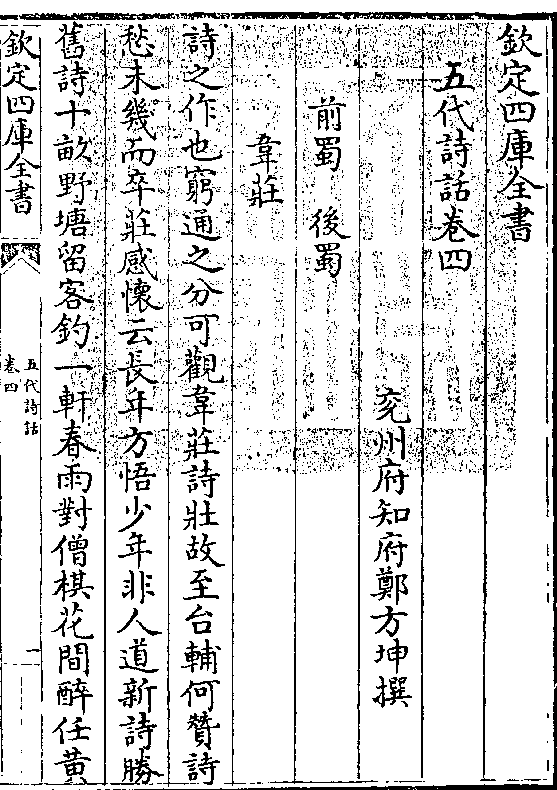 欽定四庫全書
五代詩話卷四
兖州府知府鄭方坤撰
前蜀　後蜀
韋莊
詩之作也窮通之分可觀韋莊詩壯故至台輔何贊詩
愁未幾而卒莊感懷云長年方悟少年非人道新詩勝
舊詩十畝野塘留客釣一軒春雨對僧棋花間醉任黃
欽定四庫全書
五代詩話
卷四
一